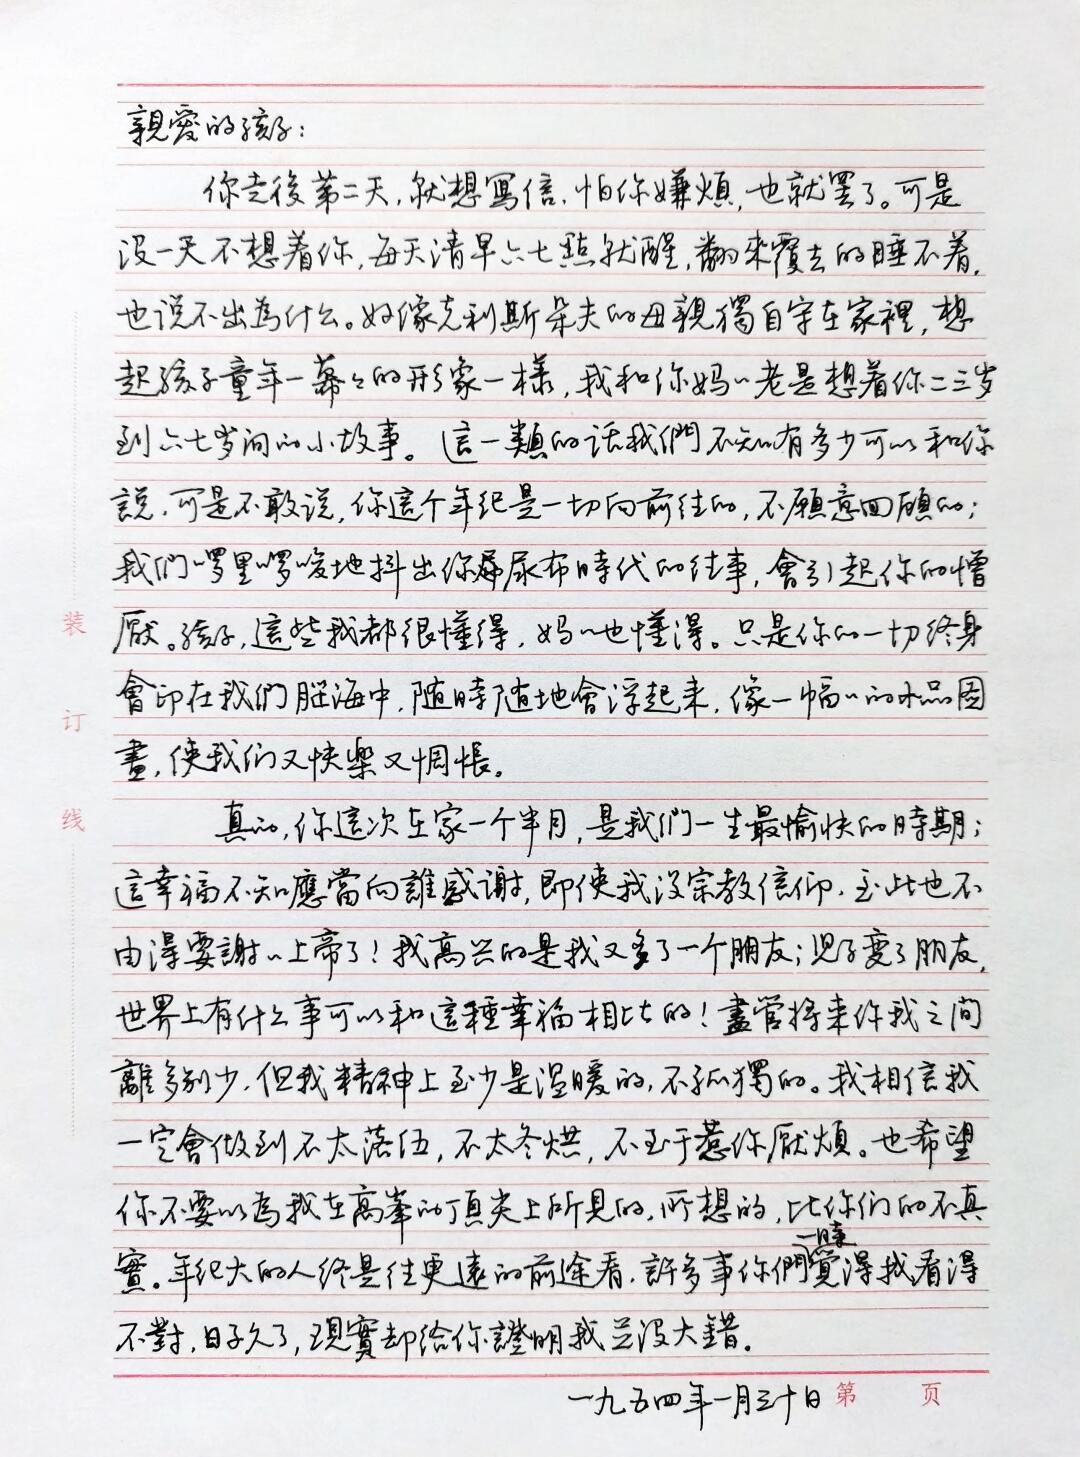 親愛的孩子：
你走後第二天，就想寫信，怕你嫌煩，也就罢了。可是
没一天不想着你，每天清早六七點就醒，翻來覆去的睡不着，
也说不出為什么。好像克利斯朵夫的母親獨自守在家裡，想
起孩子童年一幕々的形象一樣，我和你妈〃老是想着你二三岁
到六七岁间的小故事。這一類的话我們不知有多少可以和你
說，可是不敢说，你這个年纪是一切向前往的，不願意回顧的；
我們啰里啰唆地抖出你屎尿布時代的往事，會引起你的憎
厭。孩子，這些我都很懂得，妈〃也懂得。只是你的一切终身
會印在我們脑海中，随時随地會浮起来，像一幅〃的小品图
畫，使我们又快樂又惆悵。
真的，你這次在家一个半月，是我們一生最愉快的時期；
這幸福不知應當向誰感谢，即使我没宗教信仰，至此也不
由得要謝〃上帝了！我高兴的是我又多了一个朋友；児子变了朋友，
世界上有什么事可以和這種幸福相比的！盡管将来你我之间
離多别少，但我精神上至少是温暖的，不孤獨的。我相信我
一定會做到不太落伍，不太冬烘，不至于惹你厭煩。也希望
你不要以為我在高峯的頂尖上所見的，所想的，比你们的不真
實。年纪大的人终是往更遠的前途看，許多事你們一時覺得我看得
不對，日子久了，現實却给你證明我並没大錯。
一九五四年一月三十日
第 页
装
订
线